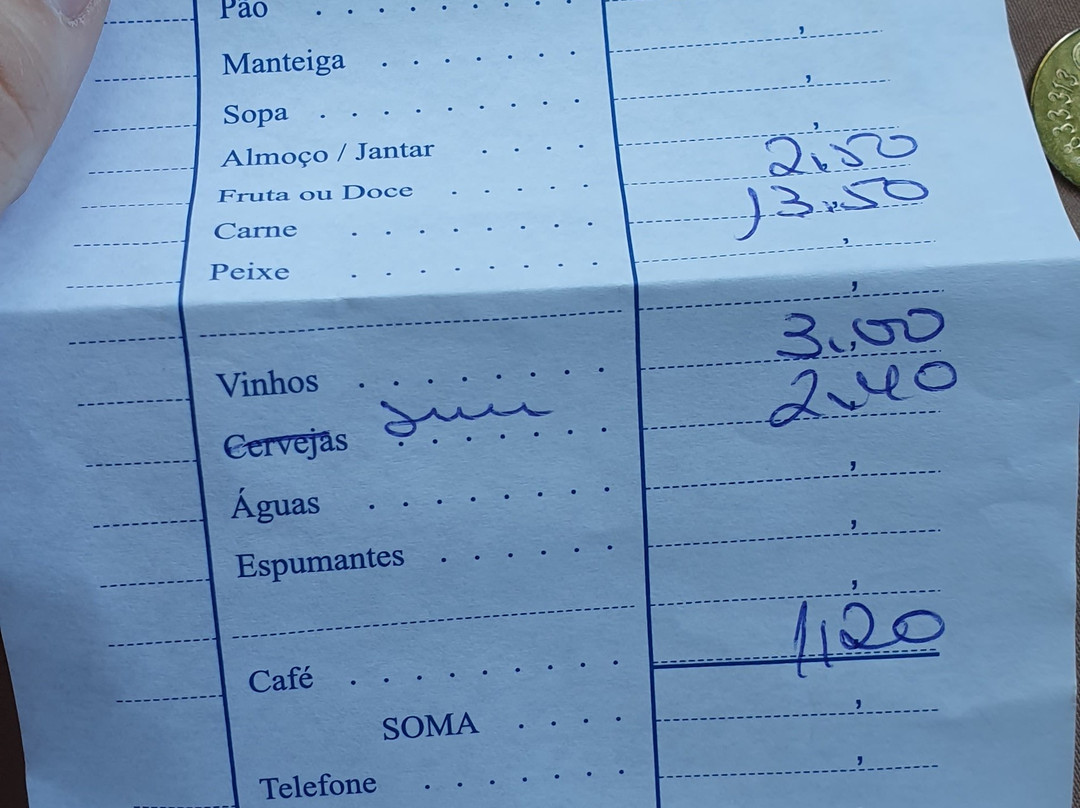 Pão . . . . . . . . .
Manteiga . . . . . . . ,
Sopa . . . . . . . . . ,
Almoço / Jantar . . . . ,
Fruta ou Doce . . . . . 2,50
Carne . . . . . . . . 13,50
Peixe . . . . . . . . ,
,
Vinhos . . . . . . . . 3,00
Cervejas . . . . . . . 2,40
Águas . . . . . . . . ,
Espumantes . . . . . . ,
,
Café . . . . . . . . . 1,20
SOMA . . . . ,
Telefone . . . . . . . ,